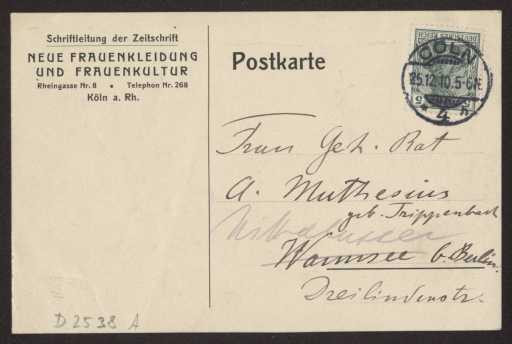 Schriftleitung der Zeitschrift
NEUE FRAUENKLEIDUNG
UND FRAUENKULTUR
Rheingasse Nr. 8 • Telephon Nr. 268
Köln a. Rh.
Postkarte
CÖLN
25.12.10.5-6N.
* 4 h
Frau Geh. Rat
A. Muthesius
geb. Trippenbach
Nikolassee
Wannsee b. Berlin.
Dreilindenstr.
D 2538 A